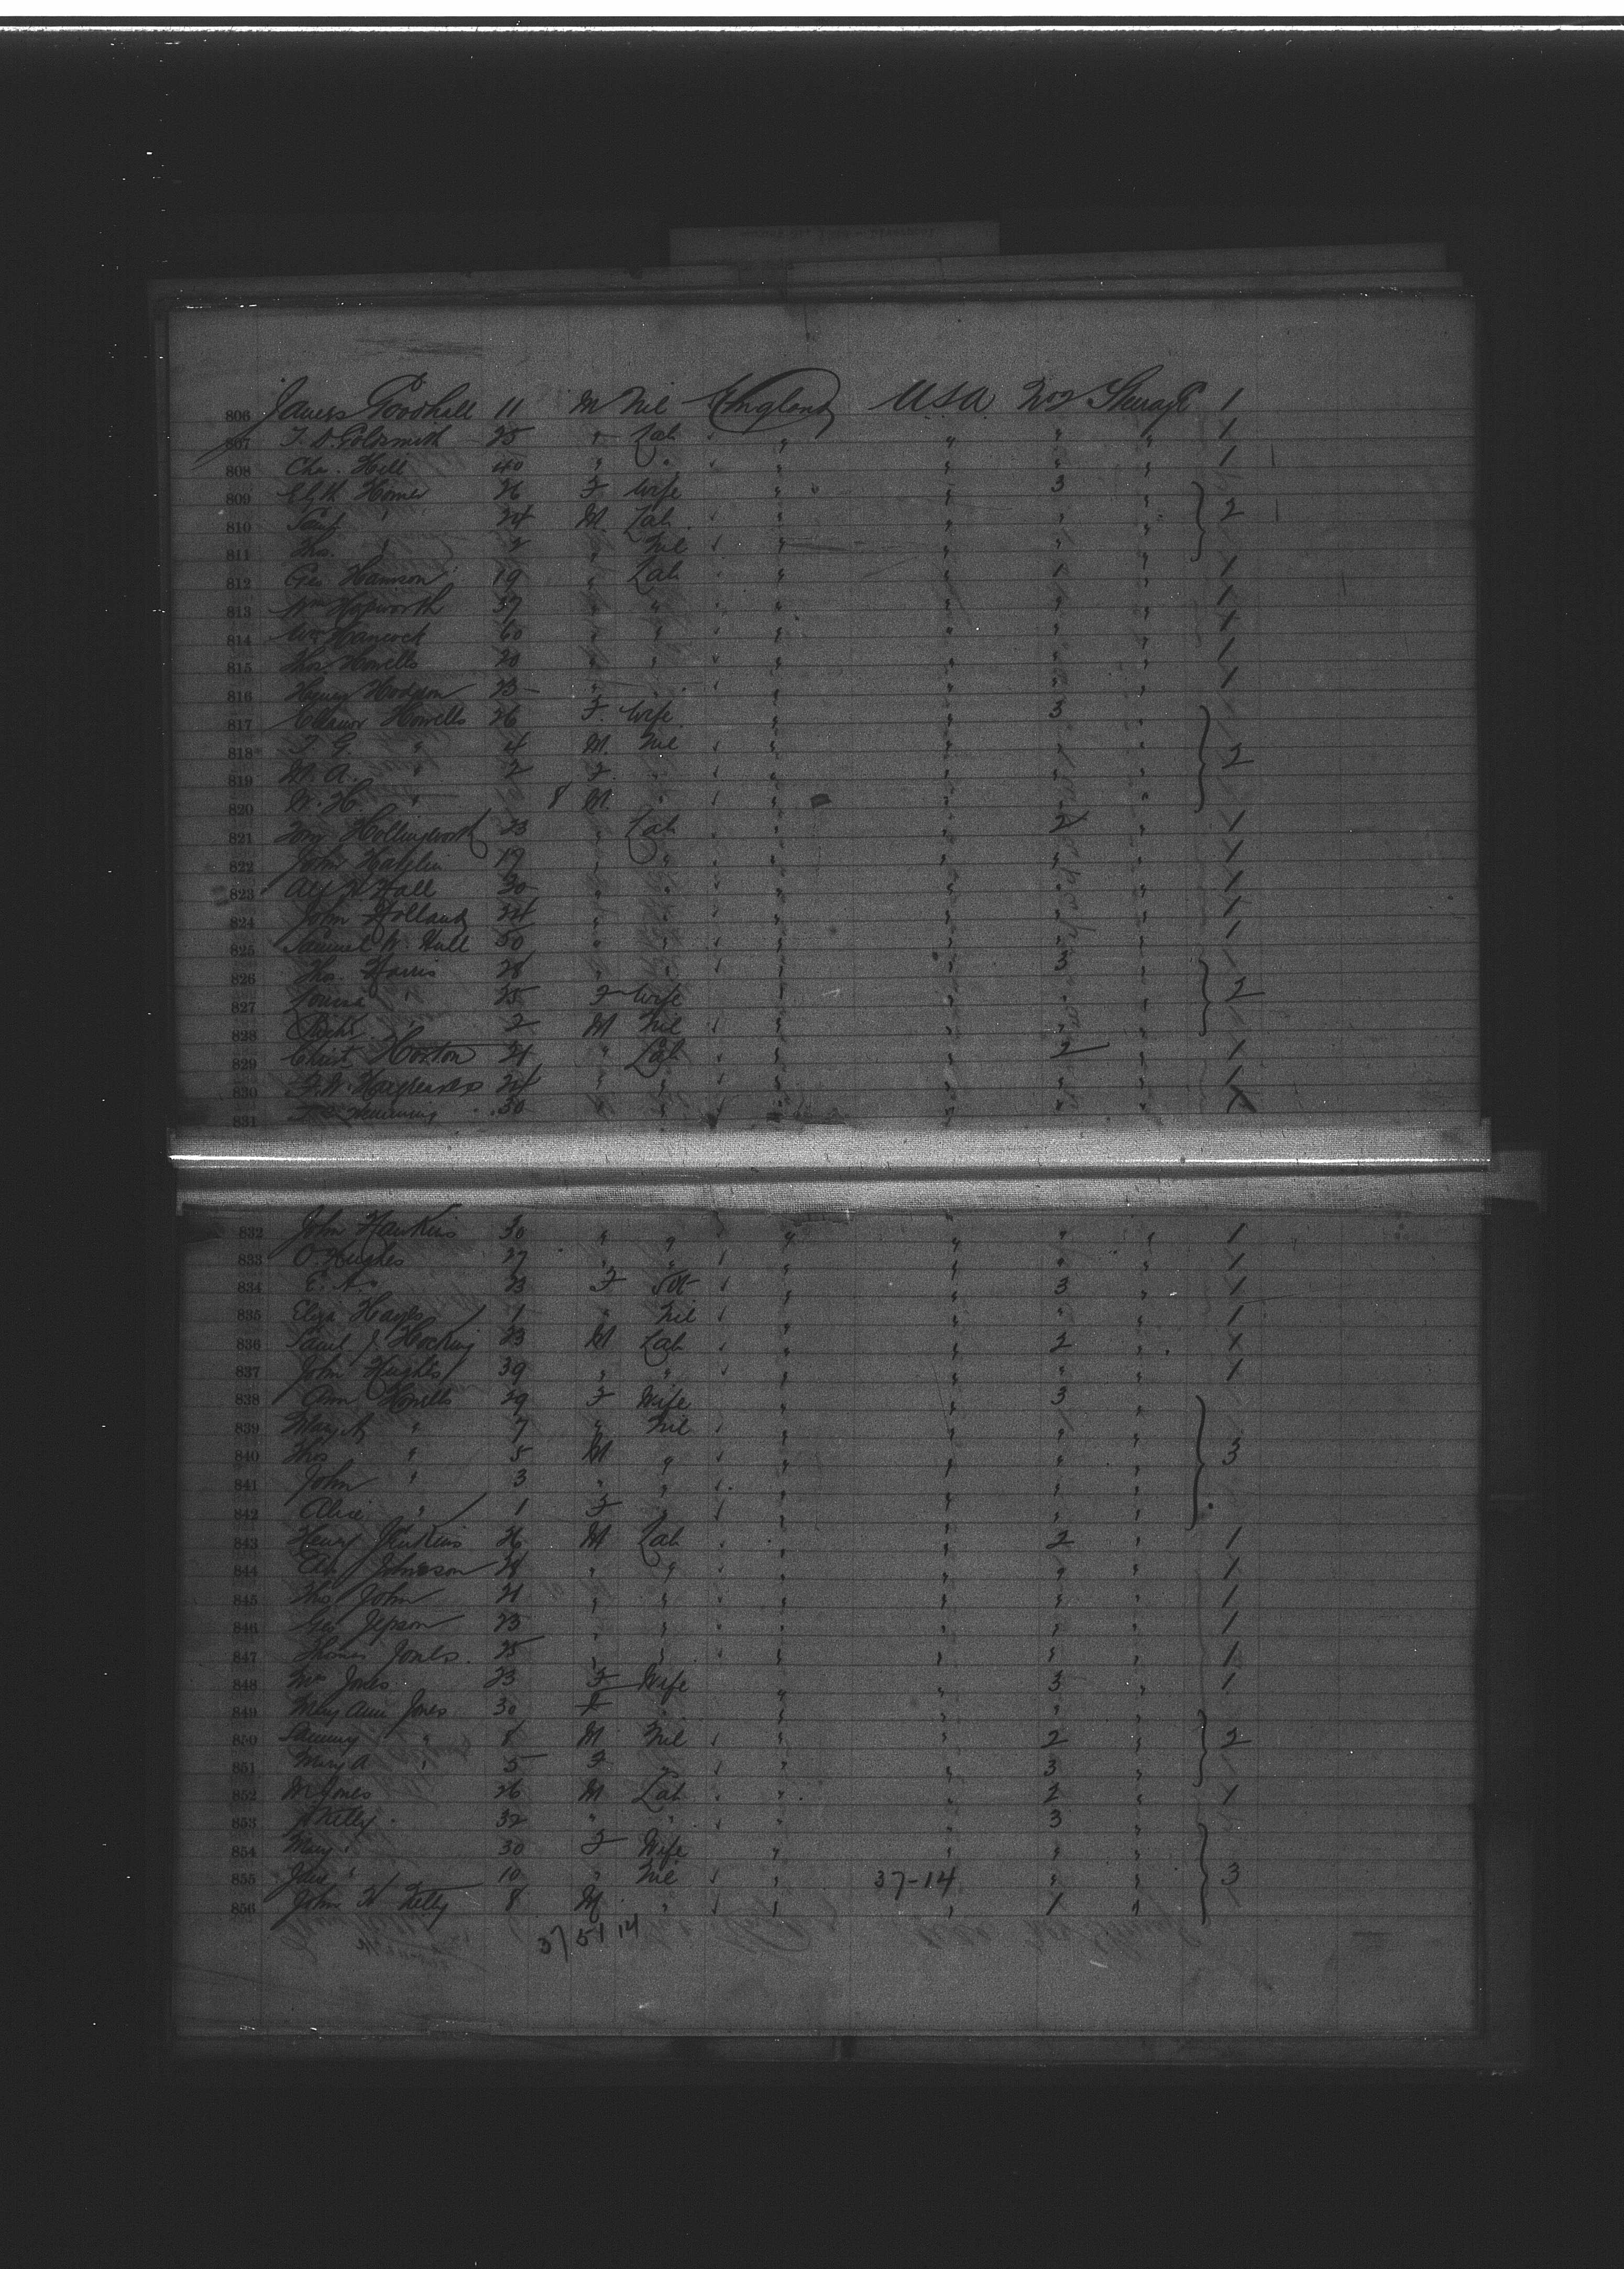 806 James Goodhall 11 M Nil England USA No 2 Steerage 1
807 T. D. Goldsmith 25 " Lab " " " " " 1
808 Chas. Hill 40 " " " " " " 1
809 Elzth Homer 26 F Wife " " 3 "
810 Saml " 24 M Lab " " " " 2
811 Thos. " 2 " Nil " " " "
812 Geo Hamson 19 " Lab " " 1 " 1
813 Wm Hapworth 37 " " " " " " 1
814 Wm Hancock 60 " " " " " " 1
815 Thos Howells 20 " " " " " " 1
816 Henry Hodgson 23 " " " " " " 1
817 Howells 26 F. Wife " " 3 "
818 T. G. " 4 M. Nil " " " " 2
819 M. A. " 2 F. " " " " "
820 W. H. " 8 M. " " " " "
821 Tom Hollingworth 23 " Lab " " 2 " 1
822 John 19 " " " " " " 1
823 Alf Hall 30 " " " " " " 1
824 John Holland 24 " " " " " " 1
825 Samuel W. Hull 50 " " " " " " 1
826 Thos. Harris 28 " " " " 3 "
827 Louisa " 25 F Wife " " " " 2
828 " 2 M Nil " " " "
829 Christ Horton 21 " Lab " " 2 " 1
830 F. W. Hargreaves 24 " " " " " " 1
831 30 " " " " " " X
832 John Hawkins 30 " " " " " " 1
833 O. Hughes 27 " " " " " " 1
834 E. A. " 23 F " " 3 " 1
835 Eliza Hayes 1 " Nil " " " " 1
836 Saml J. Hocking 23 M Lab " " 2 " X
837 John Hughes 39 " " " " " " 1
838 Ann Howells 29 F Wife " " 3 "
839 Mary A " 7 " Nil " " " "
840 Thos " 5 M " " " " " 3
841 John " 3 " " " " " "
842 Alice " 1 F " " " " "
843 Henry Jenkins 26 M Lab " " 2 " 1
844 Johnson 28 " " " " " " 1
845 Thos John 21 " " " " " " 1
846 Geo Jepson 23 " " " " " " 1
847 Thomas Jones. 25 " " " " " " 1
848 Mrs Jones 23 F Wife " " 3 " 1
849 Mary Ann Jones 30 F " " " " "
850 Sammy " 8 M Nil " " 2 " 2
851 Mary A " 5 F " " " 3 "
852 W Jones 26 M Lab " " 2 " 1
853 Kelly 32 " " " " 3 "
854 Mary " 30 F Wife " " " "
855 Jane " 10 " Nil " 37-14 " " 3
856 John W Kelly 8 M " " " 1 "
37 51 14